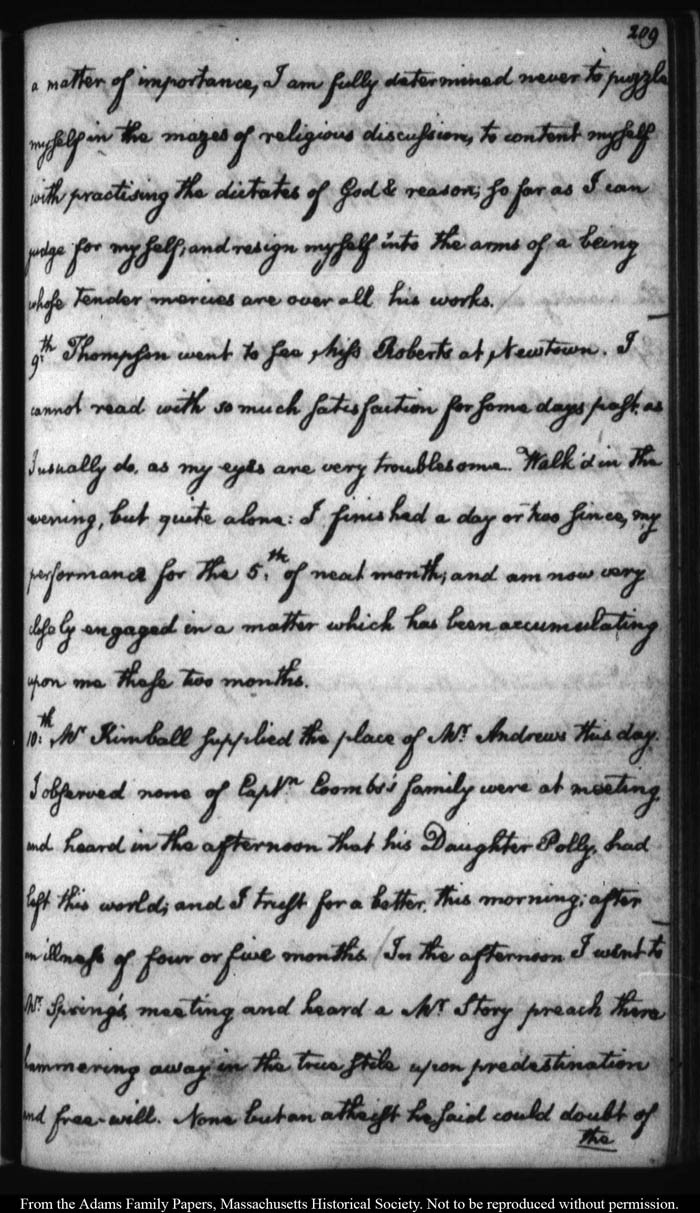 209
a matter of importance, I am fully determined never to puzzle
myself in the mazes of religious discussion, to content myself
with practising the dictates of God & reason, so far as I can
judge for myself, and resign myself into the arms of a being
whose tender mercies are over all his works.
9:th Thompson went to see Miss Roberts at Newtown. I
cannot read with so much satisfaction for some days past, as
I usually do, as my eyes are very troublesome. Walk'd in the
evening, but quite alone: I finished a day or two since, my
performance for the 5.th of next month; and am now very
closely engaged in a matter which has been accumulating
upon me these two months.
10:th Mr Kimball supplied the place of Mr. Andrews this day.
I observed none of Captn Coombs's family were at meeting,
and heard in the afternoon that his Daughter Polly, had
left this world; and I trust for a better, this morning; after
an illness of four or five months. In the afternoon I went to
Mr. Spring's meeting and heard a Mr. Story preach there
hammering away in the true stile upon predestination
and free-will. None but an atheist he said could doubt of
the
From the Adams Family Papers, Massachusetts Historical Society. Not to be reproduced without permission.